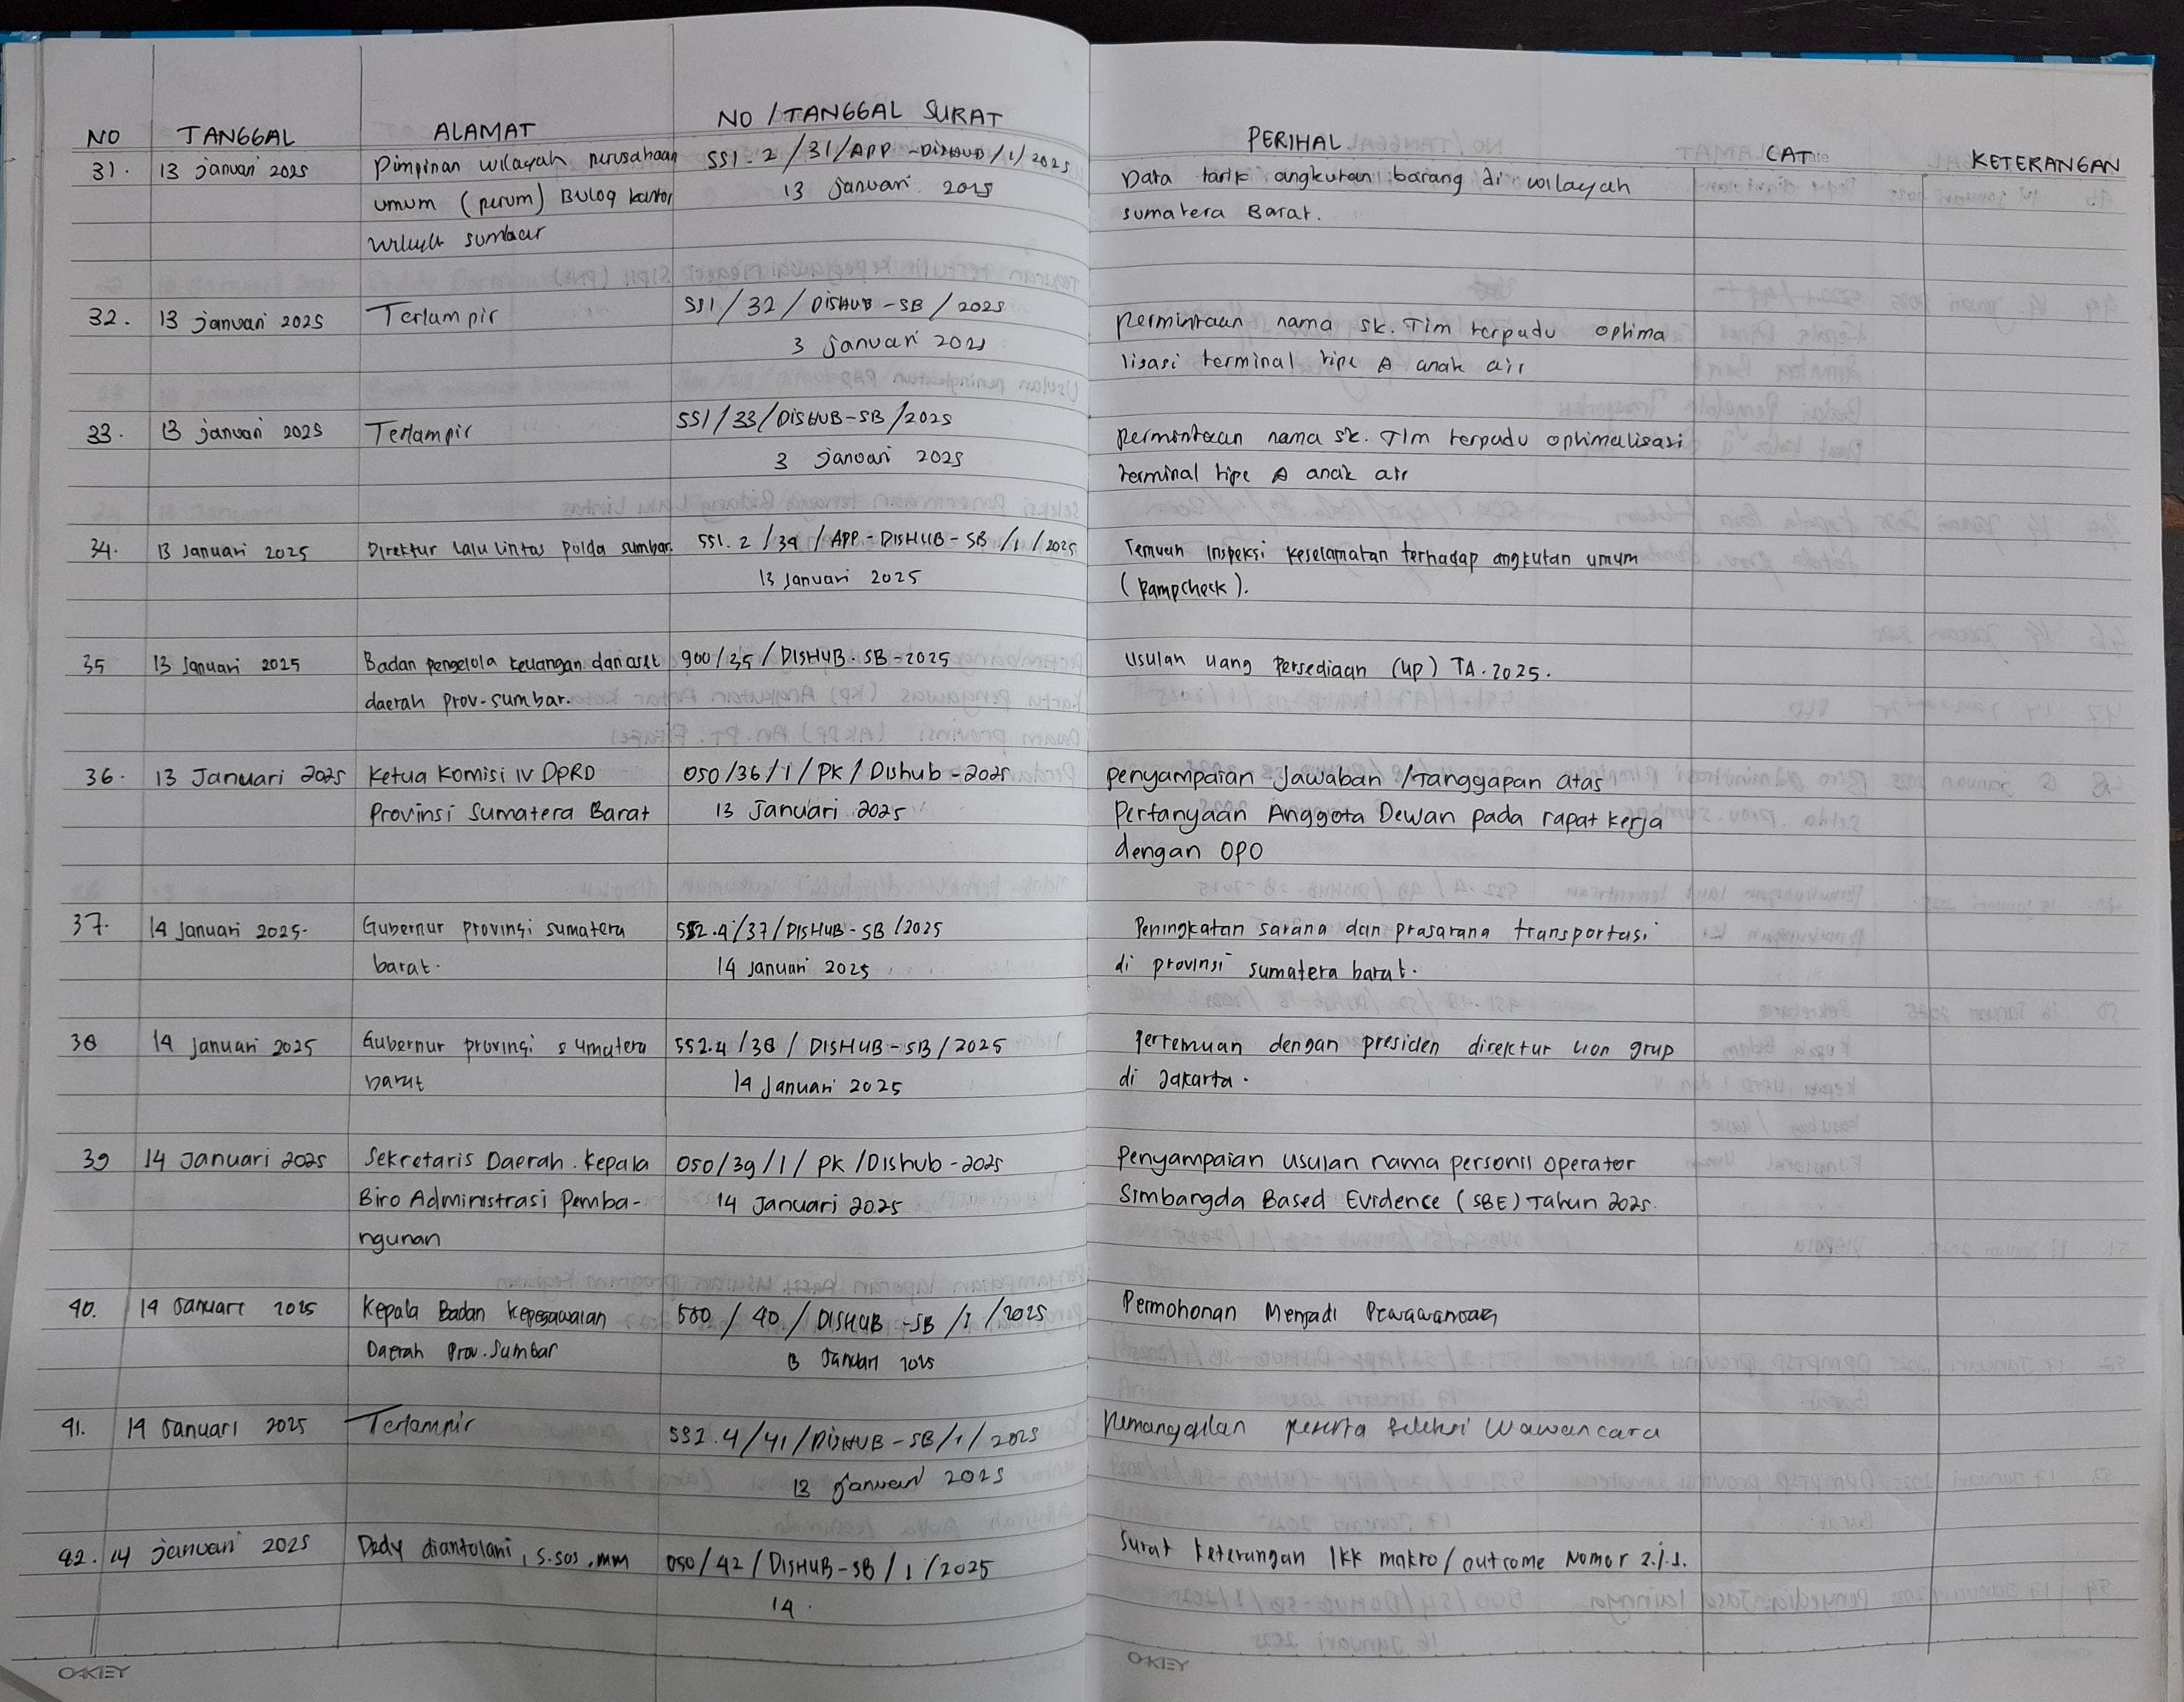 NO TANGGAL ALAMAT NO / TANGGAL SURAT PERIHAL CAT KETERANGAN
31. 13 januari 2025 Pimpinan wilayah perusahaan 551.2 / 31 / APP - DISHUB / 1 / 2025 Data tarif angkutan barang di wilayah
umum (perum) BULOG kantor 13 januari 2025 sumatera Barat.
wilayah sumbar
32. 13 januari 2025 Terlampir 551 / 32 / DISHUB - SB / 2025 permintaan nama sk. Tim terpadu optima
3 januari 2025 lisasi terminal tipe A anak air
33. 13 januari 2025 Terlampir 551 / 33 / DISHUB - SB / 2025 permintaan nama sk. Tim terpadu optimalisasi
3 januari 2025 terminal tipe A anak air
34. 13 Januari 2025 Direktur lalu lintas polda sumbar. 551.2 / 34 / APP - DISHUB - SB / 1 / 2025 Temuan Inspeksi keselamatan terhadap angkutan umum
13 Januari 2025 (Rampcheck).
35 13 Januari 2025 Badan pengelola keuangan dan aset 900 / 35 / DISHUB. SB - 2025 usulan uang Persediaan (up) TA. 2025.
daerah prov-sumbar.
36. 13 Januari 2025 Ketua Komisi IV DPRD 050 / 36 / 1 / PK / Dishub - 2025 penyampaian Jawaban / Tanggapan atas
Provinsi Sumatera Barat 13 Januari 2025 Pertanyaan Anggota Dewan pada rapat kerja
dengan OPD
37. 14 Januari 2025. Gubernur provinsi sumatera 552.4 / 37 / DISHUB - SB / 2025 Peningkatan sarana dan prasarana transportasi
barat. 14 Januari 2025 di provinsi sumatera barat.
38 14 Januari 2025 Gubernur provinsi sumatera 552.4 / 38 / DISHUB - SB / 2025 Pertemuan dengan presiden direktur Lion grup
barat 14 Januari 2025 di Jakarta.
39 14 Januari 2025 Sekretaris Daerah. Kepala 050 / 39 / 1 / PK / Dishub - 2025 Penyampaian usulan nama personil operator
Biro Administrasi Pemba- 14 Januari 2025 Simbangda Based Evidence (SBE) Tahun 2025.
ngunan
40. 14 Januari 2025 Kepala Badan Kepegawaian 500 / 40 / DISHUB - SB / 1 / 2025 Permohonan Menjadi Pewawancara
Daerah Prov. Sumbar 13 Januari 2025
41. 14 Januari 2025 Terlampir 552.4 / 41 / DISHUB - SB / 1 / 2025 pemanggilan peserta seleksi Wawancara
13 januari 2025
42. 14 januari 2025 Dedy diantolani, S.sos, mm 050 / 42 / DISHUB - SB / 1 / 2025 Surat keterangan IKK makro / outcome Nomor 2.j.1.
14.
OKEY OKEY